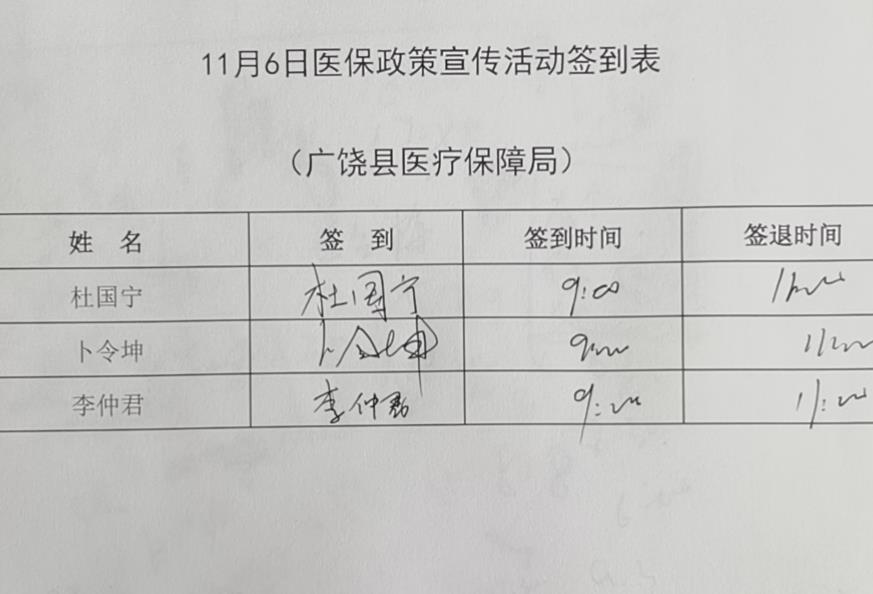 11月6日医保政策宣传活动签到表
（广饶县医疗保障局）
姓 名 签 到 签到时间 签退时间
杜国宁 杜国宁 9:00 11:00
卜令坤 卜令坤 9:00 11:00
李仲君 李仲君 9:00 11:00